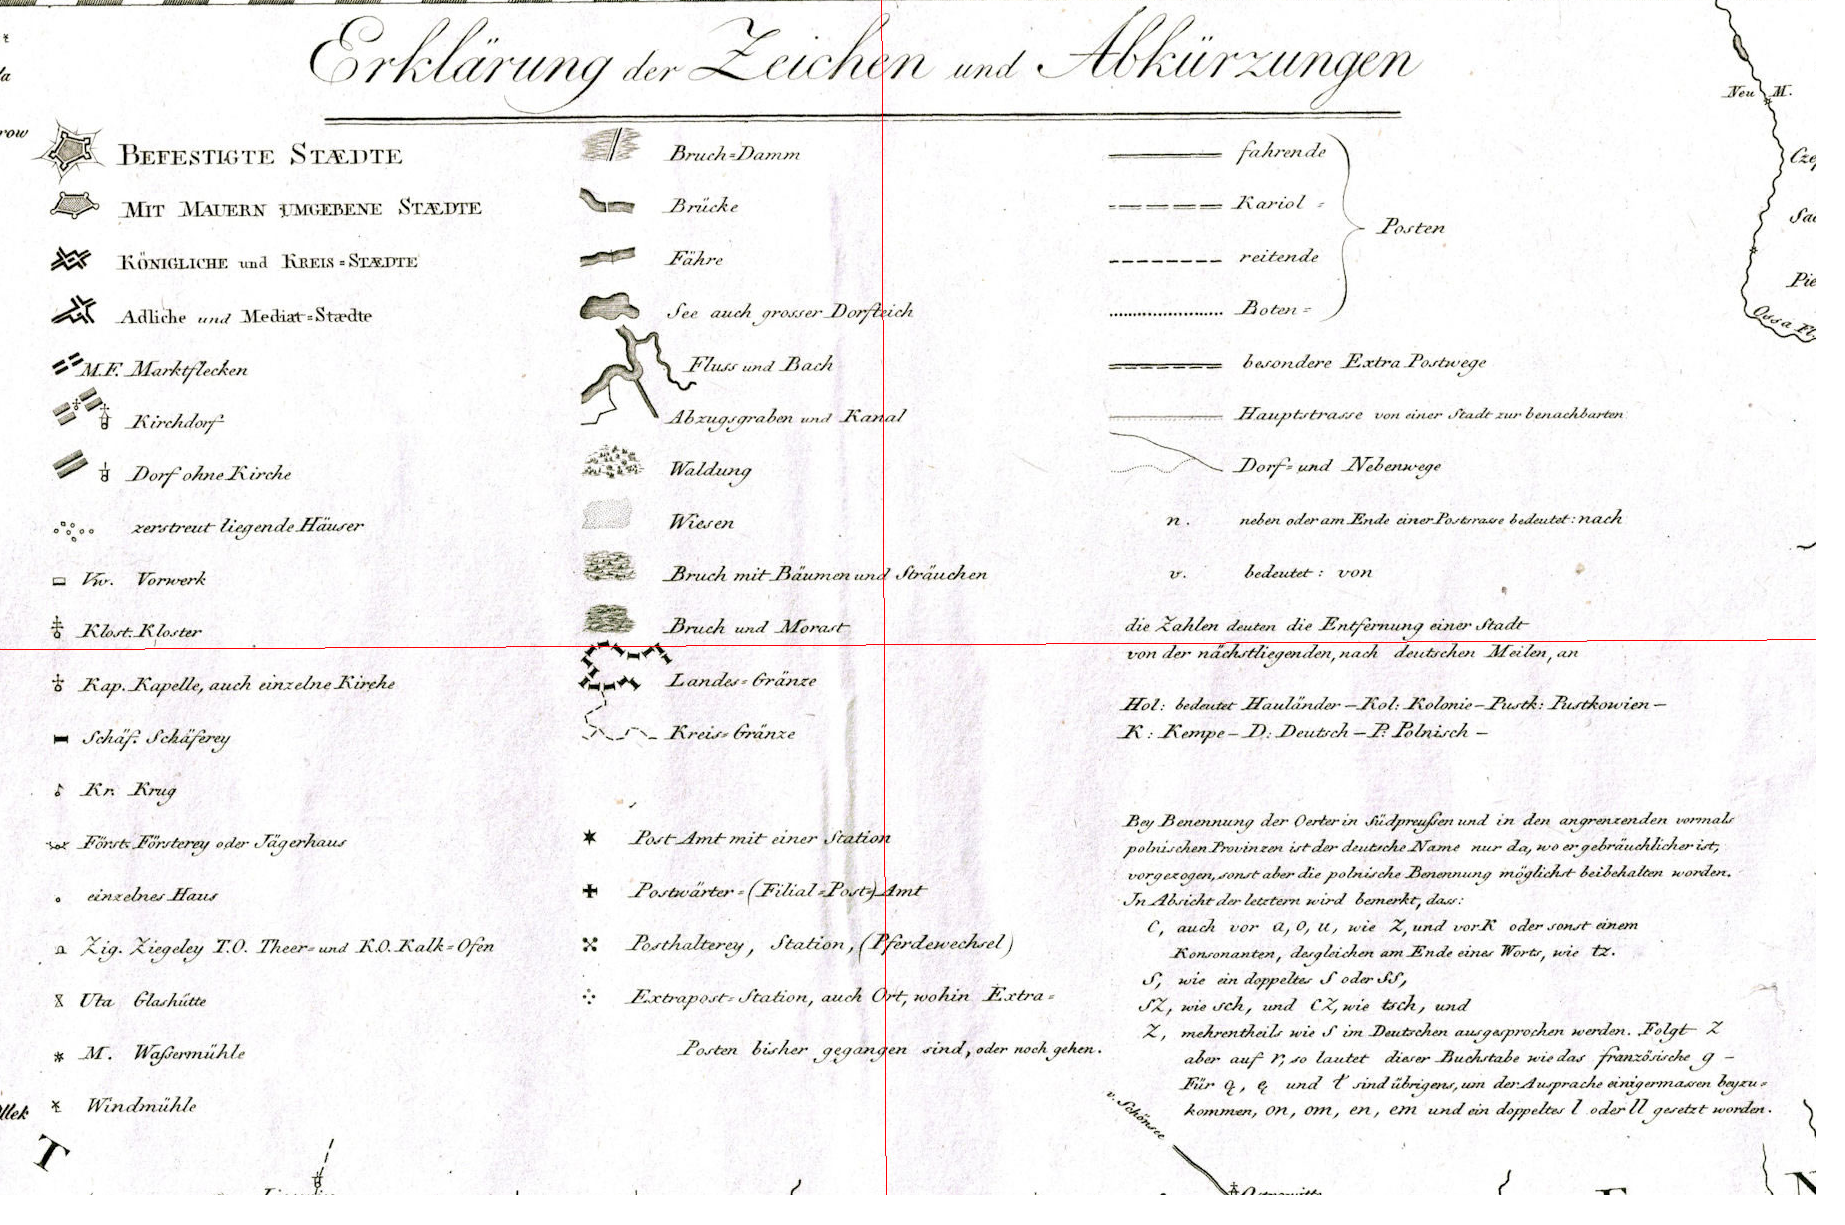 Erklärung der Zeichen und Abkürzungen
BEFESTIGTE STÆDTE
MIT MAUERN UMGEBENE STÆDTE
KÖNIGLICHE und KREIS=STÆDTE
Adliche und Mediat=Stædte
M.F. Marktflecken
Kirchdorf
Dorf ohne Kirche
zerstreut liegende Häuser
Vw. Vorwerk
Klost. Kloster
Kap. Kapelle, auch einzelne Kirche
Schäf. Schäferey
Kr. Krug
Först. Försterey oder Jägerhaus
einzelnes Haus
Zig. Ziegeley T.O. Theer= und K.O. Kalk=Ofen
Uta Glashütte
M. Waßermühle
Windmühle
Bruch=Damm
Brücke
Fähre
See auch grosser Dorfteich
Fluss und Bach
Abzugsgraben und Kanal
Waldung
Wiesen
Bruch mit Bäumen und Sträuchen
Bruch und Morast
Landes=Gränze
Kreis=Gränze
Post Amt mit einer Station
Postwärter=(Filial=Post=) Amt
Posthalterey, Station, (Pferdewechsel)
Extrapost=Station, auch Ort, wohin Extra=
Posten bisher gegangen sind, oder noch gehen.
fahrende
Kariol =
reitende
Boten =
Posten
besondere Extra Postwege
Hauptstrasse von einer Stadt zur benachbarten
Dorf= und Nebenwege
n. neben oder am Ende einer Postsrasse bedeutet: nach
v. bedeutet: von
die Zahlen deuten die Entfernung einer Stadt
von der nächstliegenden, nach deutschen Meilen, an
Hol: bedeutet Hauländer – Kol: Kolonie – Pustk: Pustkowien –
K: Kempe – D: Deutsch – P: Polnisch –
Bey Benennung der Oerter in Südpreußen und in den angrenzenden vormals
polnischen Provinzen ist der deutsche Name nur da, wo er gebräuchlicher ist,
vorgezogen, sonst aber die polnische Benennung möglichst beibehalten worden.
In Absicht der letztern wird bemerkt, dass:
C, auch vor a, o, u, wie Z, und vor K oder sonst einem
Konsonanten, desgleichen am Ende eines Worts, wie tz.
S, wie ein doppeltes S oder SS,
SZ, wie sch, und CZ, wie tsch, und
Z, mehrentheils wie S im Deutschen ausgesprochen werden. Folgt Z
aber auf r, so lautet dieser Buchstabe wie das französische g –
Für ą, ę und ł sind übrigens, um der Ausprache einigermassen beyzu=
kommen, on, om, en, em und ein doppeltes l oder ll gesetzt worden.
Neu M.
Ossa Fl.
v. Schönsee
T